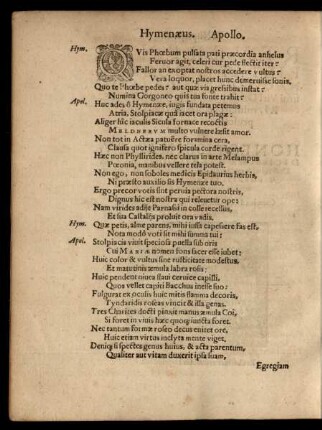 Hymenæus. Apollo.
Hym. QVis Phœbum pulsata pati præcordia anhelus
Feruor agit, celeri cur pede flectit iter?
Fallor an exoptat nostros accedere vultus?
Vera loquor, placet hunc demeruisse sonis.
Quo te Phœbe pedes? aut quæ via gressibus instat?
Numina Gorgoneo quis tua fonte trahit?
Apol. Huc ades ô Hymenæe, iugis fundata petemus
Atria, Stolpiacæ quà iacet ora plagæ:
Aliger hîc iaculis Sicula fornace recoctis
multo vulnere læsit amor.
Non tot in Actæa patuêre foramina cera,
Clausa quot ignifero spicula corde rigent.
Hæc non Phyllirides, nec clarus in arte Melampus
Pæonia, manibus vellere tela potest.
Non ego, non soboles medicis Epidaurius herbis,
Ni præsto auxilio sis Hymenæe tuo.
Ergo precor votis sint peruia pectora nostris,
Dignus hic est nostra qui releuetur ope:
Nam virides adijt Parnassi in colle recessus,
Et sua Castalijs proluit ora vadis.
Hym. Quæ petis, alme parens, mihi iussa capessere fas est,
Nota modò voti sit mihi summa tui:
Apol. Stolpiacis viuit speciosa puella sub oris
Cui MARIÆ nomen fons sacer esse iubet:
Huic color & vultus sine rusticitate modestus,
Et matutinis æmula labra rosis:
Huic pendent niuea flaui ceruice capilli.
Quos vellet capiti Bacchus inesse suo:
Fulgurat ex oculis huic mitis flamma decoris,
Tyndaridis roseas vincit & illa genas.
Tres Charites docti pinxit manus æmula Coi,
Si foret in viuis hæc quoq; iuncta foret.
Nec tantum formæ roseo decus enitet ore,
Huic etiam virtus inclyta mente viget.
Deniq; si spectes genus huius, & acta parentum,
Qualiter aut vitam duxerit ipsa suam,
Egregiam